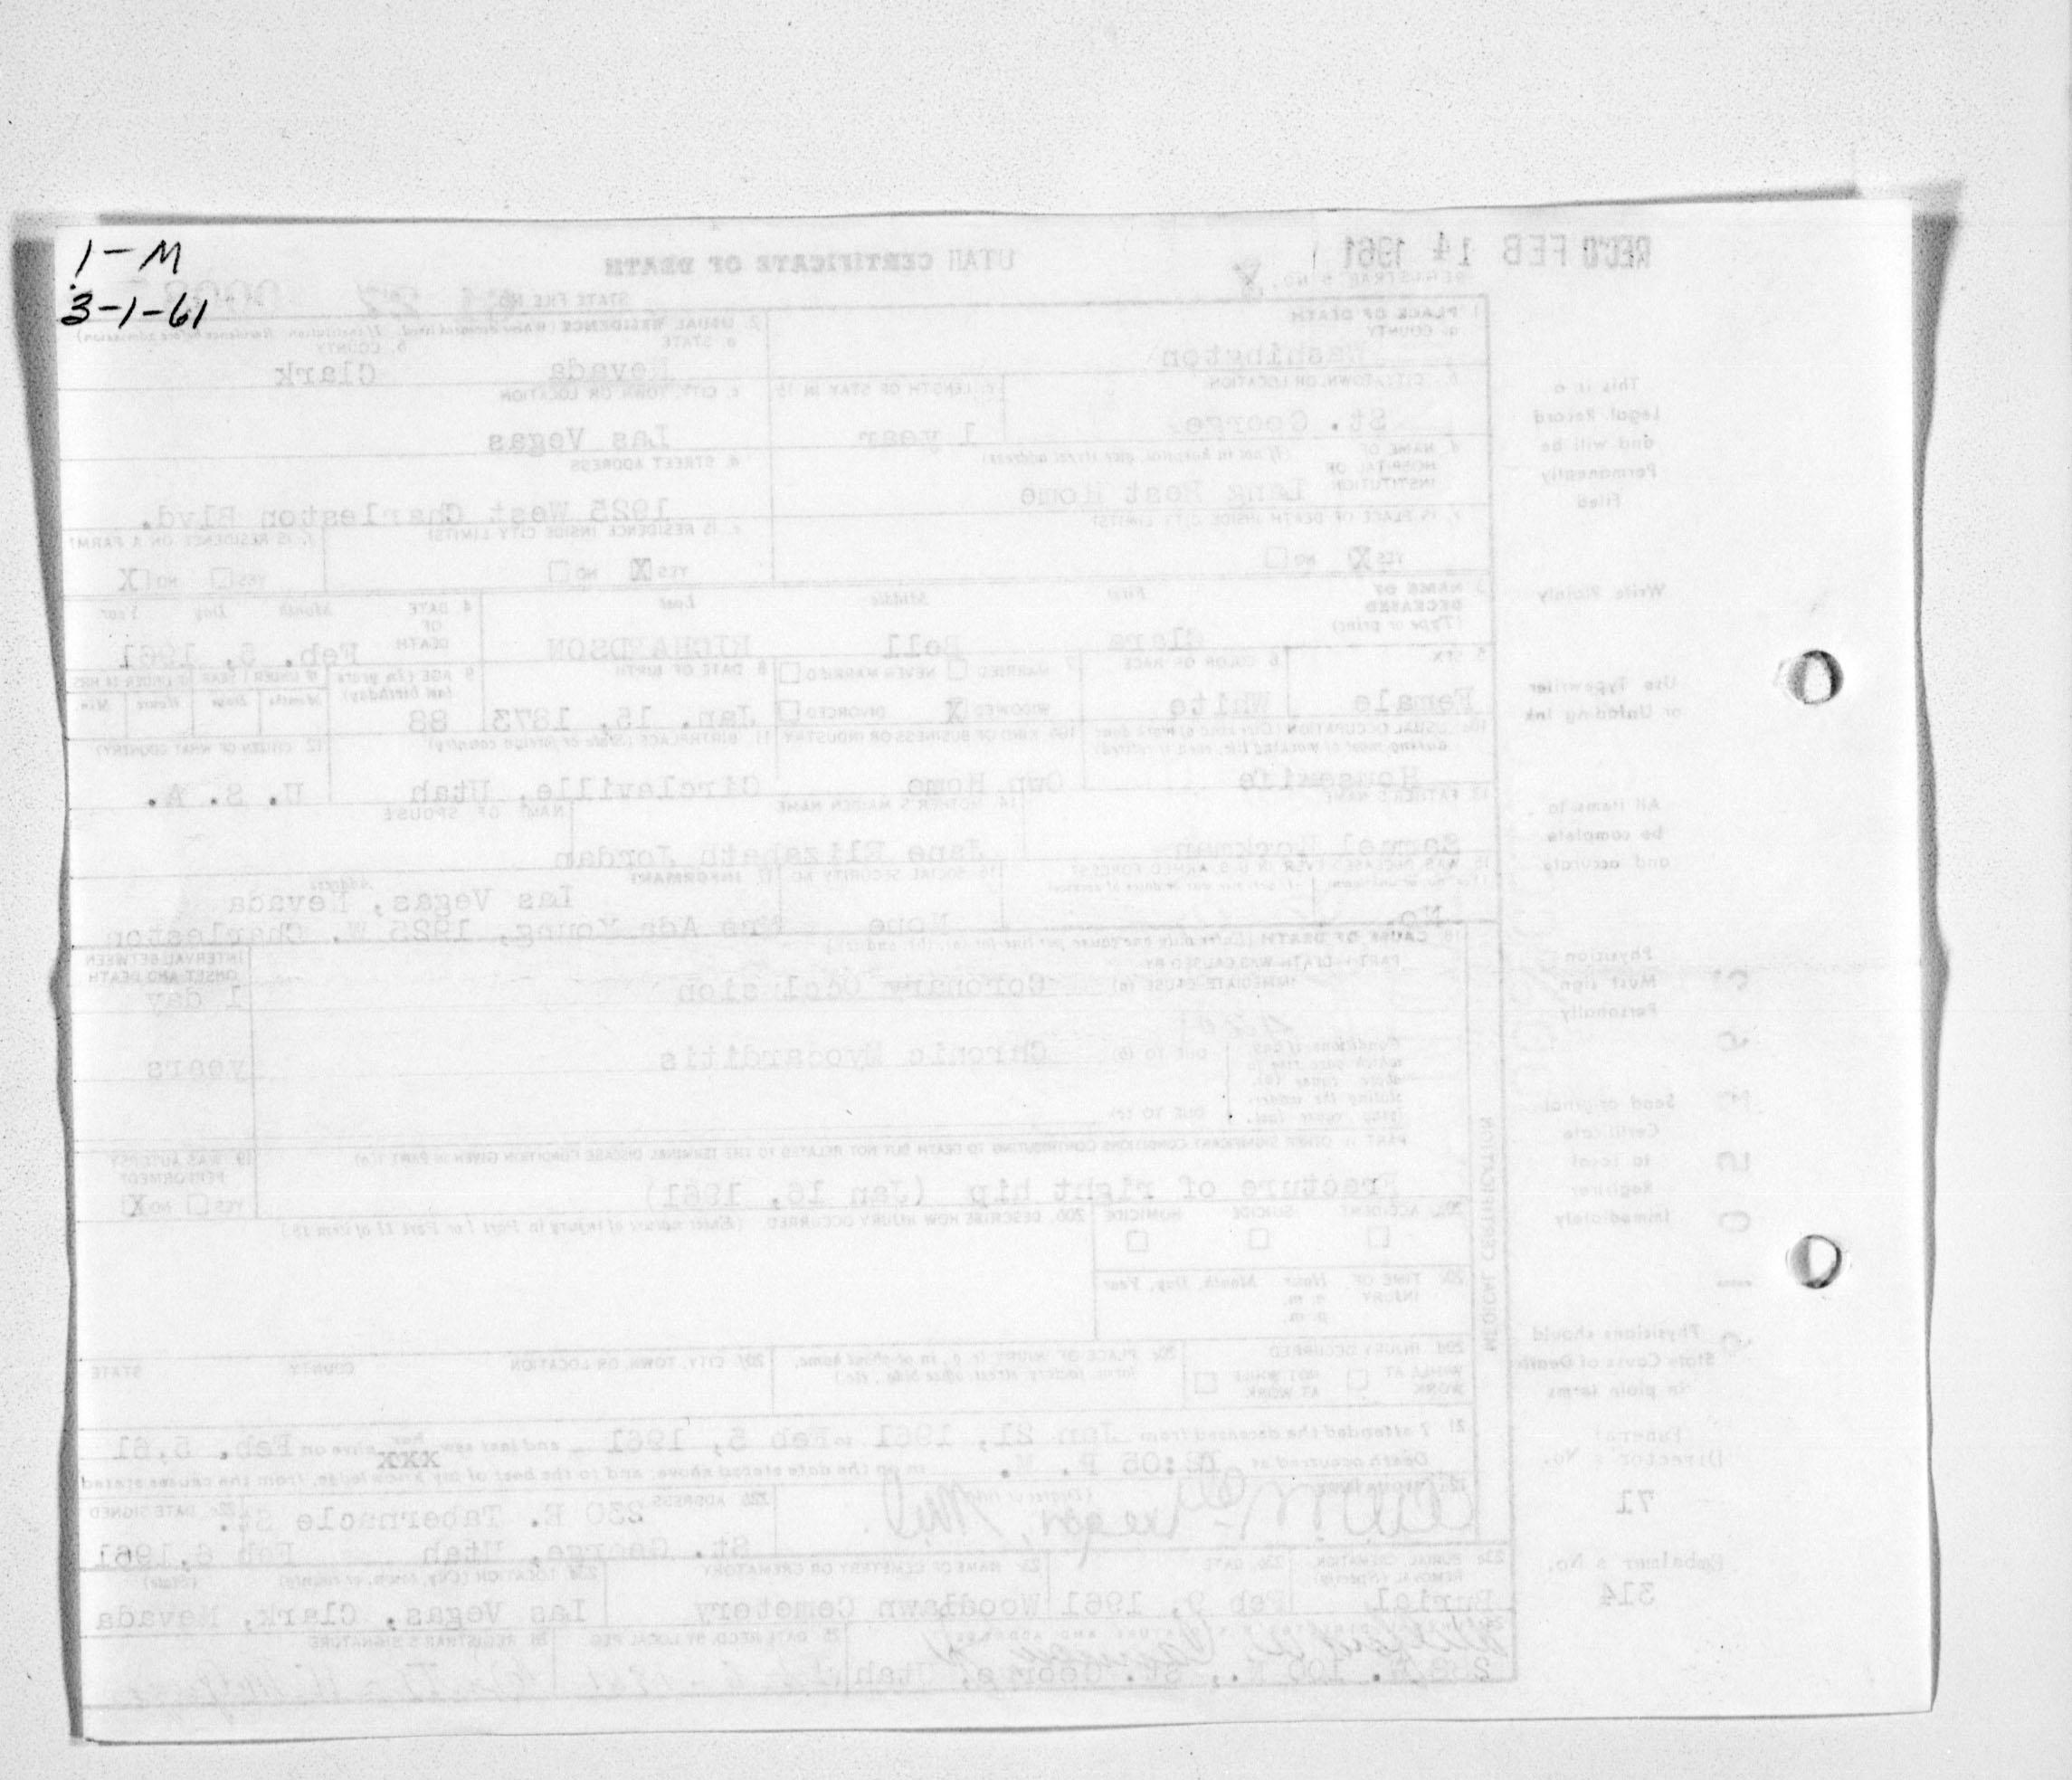 1-M
3-1-61
REC'D FEB 14 1961
UTAH CERTIFICATE OF DEATH
REGISTRAR'S NO.
STATE FILE NO. 61 27
1. PLACE OF DEATH
a. COUNTY
Washington
2. USUAL RESIDENCE (Where deceased lived. If institution: Residence before admission)
a. STATE b. COUNTY
Nevada Clark
b. CITY, TOWN, OR LOCATION c. LENGTH OF STAY IN 1b
St. George 1 year
c. CITY, TOWN OR LOCATION
Las Vegas
d. NAME OF HOSPITAL OR INSTITUTION (If not in hospital, give street address)
Home
d. STREET ADDRESS
1925 West Charleston Blvd.
e. IS PLACE OF DEATH INSIDE CITY LIMITS?
YES X NO
e. IS RESIDENCE INSIDE CITY LIMITS?
YES X NO
f. IS RESIDENCE ON A FARM?
YES NO X
3. NAME OF DECEASED (Type or print) First Middle Last
Bell RICHARDSON
4. DATE OF DEATH Month Day Year
Feb. 5, 1961
5. SEX
Female
6. COLOR OR RACE
White
7. MARRIED NEVER MARRIED
WIDOWED X DIVORCED
8. DATE OF BIRTH
Jan. 15, 1873
9. AGE (In years last birthday) IF UNDER 1 YEAR IF UNDER 24 HRS
Months Days Hours Min.
88
10a. USUAL OCCUPATION (Give kind of work done during most of working life, even if retired)
Housewife
10b. KIND OF BUSINESS OR INDUSTRY
Own Home
11. BIRTHPLACE (State or foreign country)
Circleville, Utah
12. CITIZEN OF WHAT COUNTRY?
U. S. A.
13. FATHER'S NAME
Samuel
14. MOTHER'S MAIDEN NAME
Jane Elizabeth Jordan
NAME OF SPOUSE
15. WAS DECEASED EVER IN U.S. ARMED FORCES?
No.
16. SOCIAL SECURITY NO.
None
17. INFORMANT Address
Las Vegas, Nevada
Mrs Ada Young, 1925 W. Charleston
18. CAUSE OF DEATH (Enter only one cause per line for (a), (b), and (c).)
INTERVAL BETWEEN ONSET AND DEATH
PART I. DEATH WAS CAUSED BY:
IMMEDIATE CAUSE (a) Coronary Occlusion 1 day
Conditions if any, which gave rise to above cause (a), stating the underlying cause last.
DUE TO (b) Chronic Myocarditis years
DUE TO (c)
PART II. OTHER SIGNIFICANT CONDITIONS CONTRIBUTING TO DEATH BUT NOT RELATED TO THE TERMINAL DISEASE CONDITION GIVEN IN PART I (a)
Fracture of right hip (Jan 16, 1961)
19. WAS AUTOPSY PERFORMED?
YES NO X
20a. ACCIDENT SUICIDE HOMICIDE
20b. DESCRIBE HOW INJURY OCCURRED. (Enter nature of injury in Part I or Part II of item 18.)
20c. TIME OF INJURY Hour Month, Day, Year
a. m.
p. m.
20d. INJURY OCCURRED
WHILE AT WORK NOT WHILE AT WORK
20e. PLACE OF INJURY (e. g., in or about home, farm, factory, street, office bldg., etc.)
20f. CITY, TOWN, OR LOCATION COUNTY STATE
21. I attended the deceased from Jan 21, 1961 to Feb 5, 1961 and last saw her alive on Feb. 5, 61
Death occurred at :05 P. M. on the date stated above; and to the best of my knowledge, from the causes stated
22a. SIGNATURE (Degree or title)
22b. ADDRESS
230 E. Tabernacle St.
St. George, Utah
22c. DATE SIGNED
Feb 6, 1961
23a. BURIAL, CREMATION, REMOVAL (Specify)
Burial
23b. DATE
Feb 9, 1961
23c. NAME OF CEMETERY OR CREMATORY
Woodlawn Cemetery
23d. LOCATION (City, town, or county) (State)
Las Vegas, Clark, Nevada
24. FUNERAL DIRECTOR'S SIGNATURE AND ADDRESS
St. George, Utah
25. DATE RECD. BY LOCAL REG.
26. REGISTRAR'S SIGNATURE
MEDICAL CERTIFICATION
This is a
Legal Record
and will be
Permanently
Filed
Write Plainly
Use Typewriter
or Unfading Ink
All items to
be complete
and accurate
Physician
Must sign
Personally
Send original
Certificate
to local
Registrar
Immediately
Physicians should
State Cause of Death
in plain terms
Funeral
Director's No.
71
Embalmer's No.
314